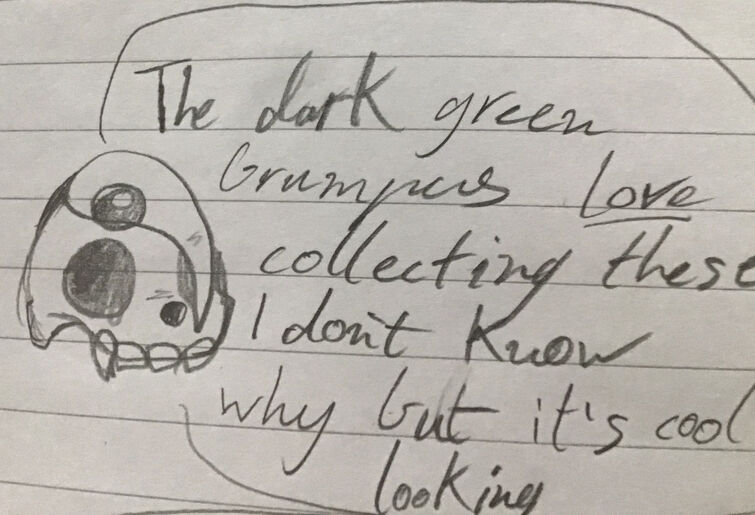 The dark green
Grumpus love
collecting these
I don't know
why but it's cool
looking